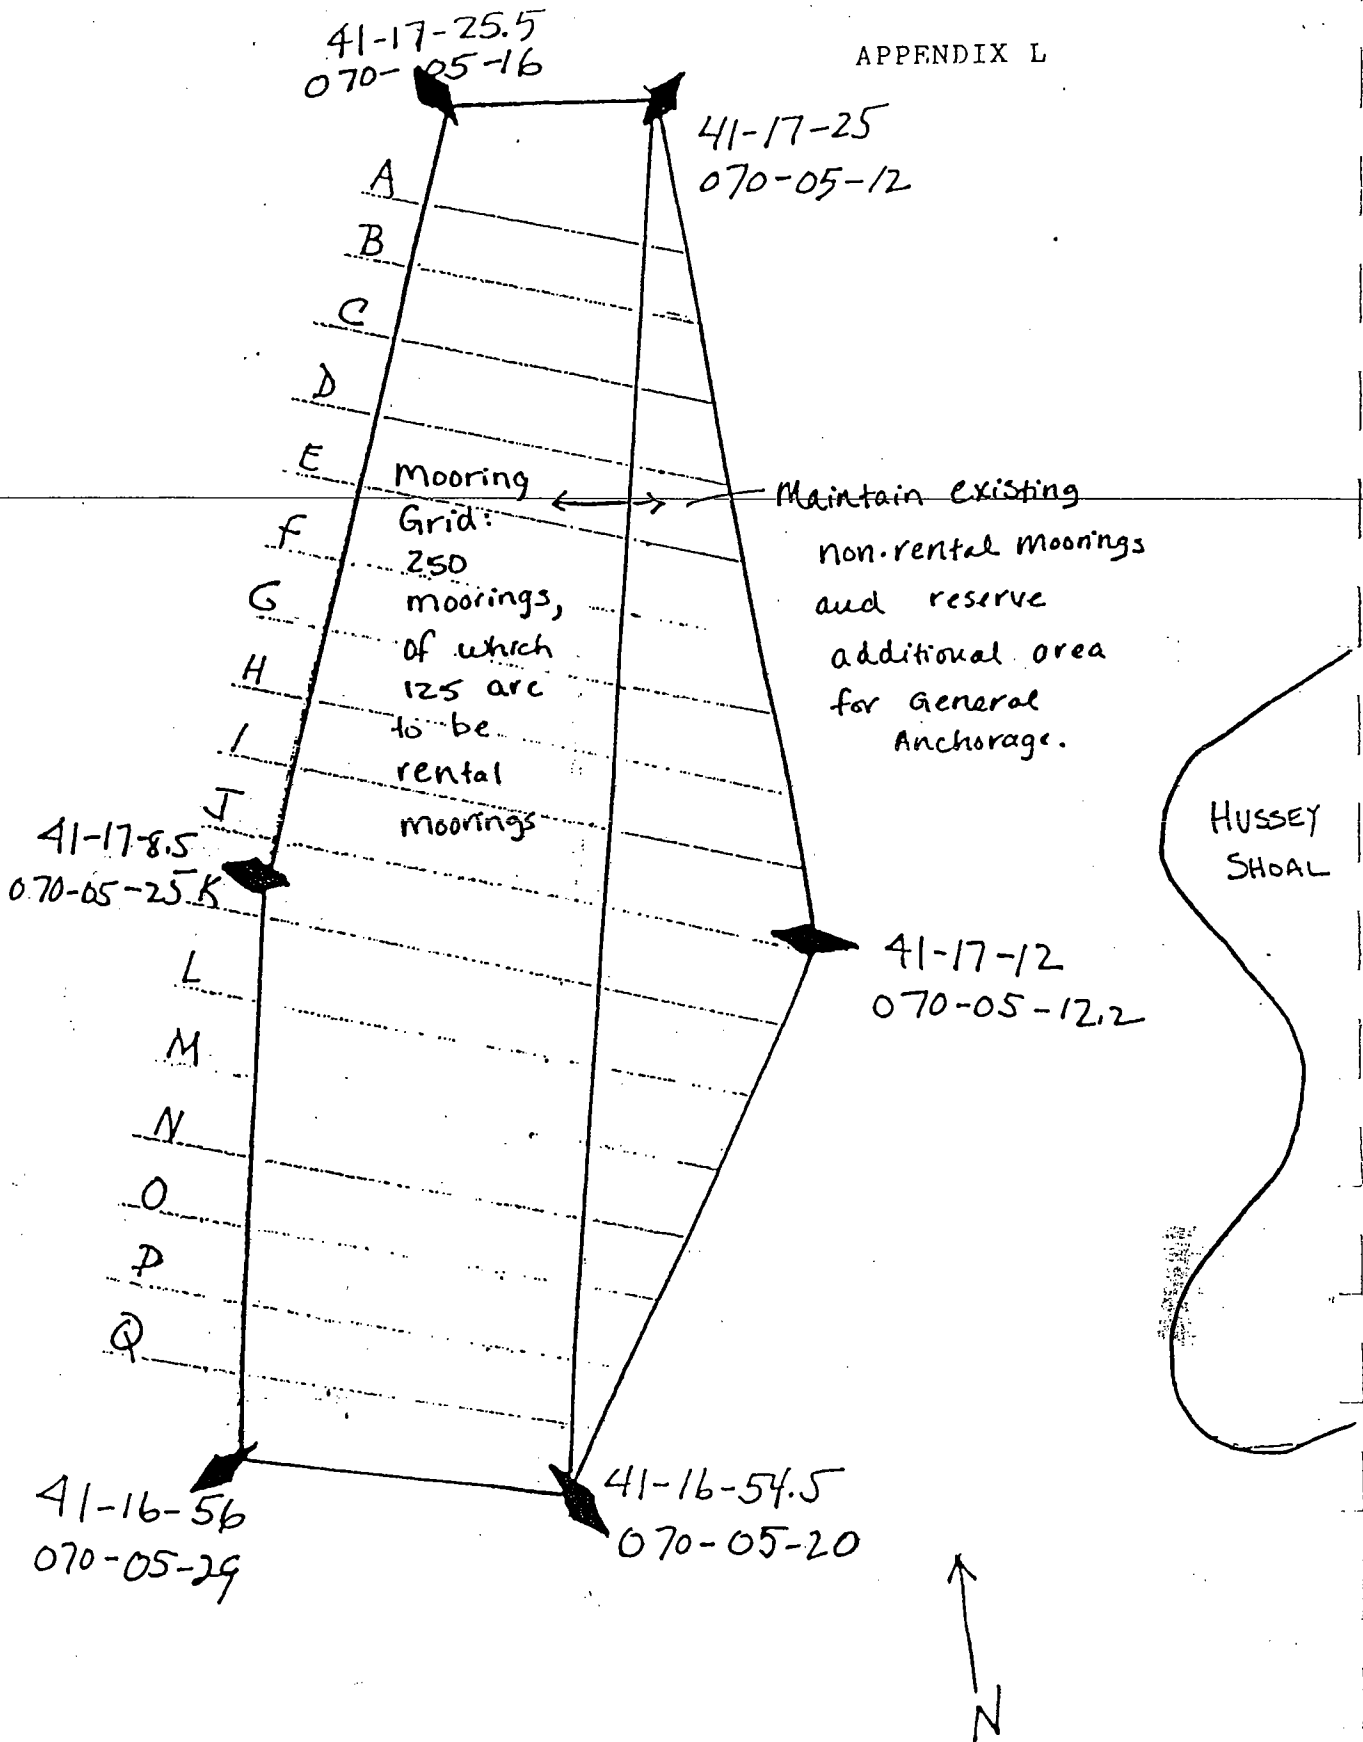 APPENDIX L
41-17-25.5
070-05-16
41-17-25
070-05-12
A
B
C
D
E
F
G
H
I
J
K
L
M
N
O
P
Q
Mooring
Grid:
250
moorings,
of which
125 are
to be
rental
moorings
Maintain existing
non-rental moorings
and reserve
additional area
for General
Anchorage.
HUSSEY
SHOAL
41-17-8.5
070-05-25
41-17-12
070-05-12.2
41-16-56
070-05-29
41-16-54.5
070-05-20
N